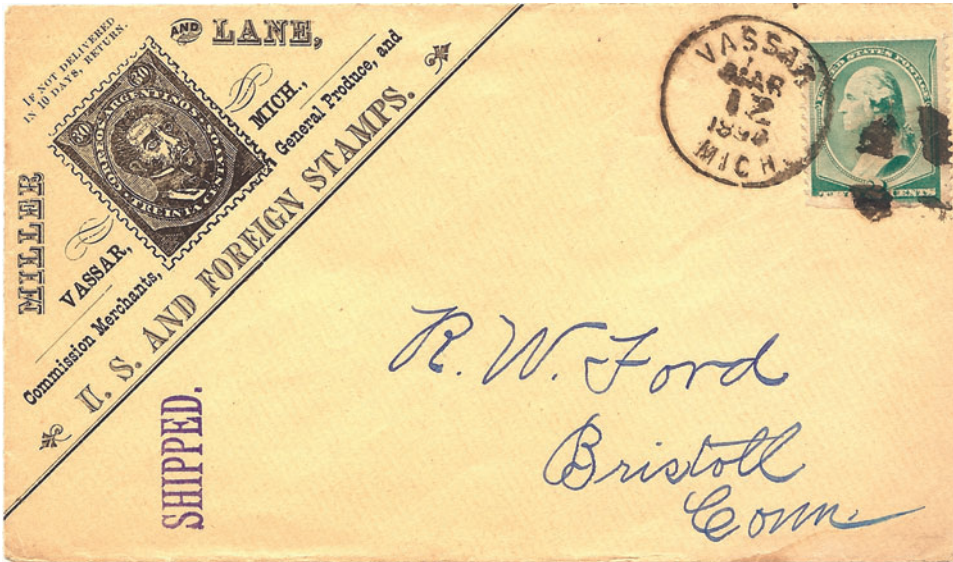 IF NOT DELIVERED
IN 10 DAYS, RETURN.
MILLER AND LANE,
VASSAR, MICH.,
Commission Merchants, General Produce, and
U. S. AND FOREIGN STAMPS.
30 30
CORREOS ARGENTINOS
TREINTA
SHIPPED.
VASSAR
MAR
12
MICH.
UNITED STATES POSTAGE
CENTS
R. W. Ford
Bristoll
Conn.